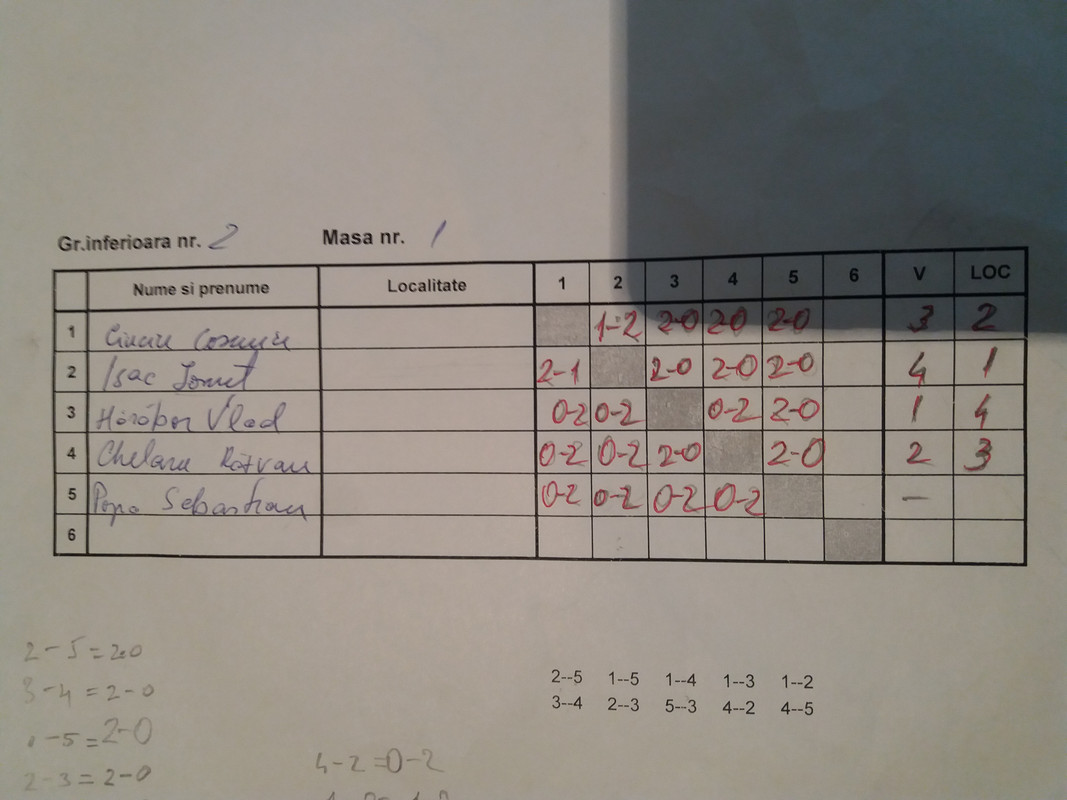 Gr.inferioara nr. 2 Masa nr. 1
Nume si prenume Localitate 1 2 3 4 5 6 V LOC
1 1-2 2-0 2-0 2-0 3 2
2 Isac Ionut 2-1 2-0 2-0 2-0 4 1
3 Vlad 0-2 0-2 0-2 2-0 1 4
4 Chelaru Razvan 0-2 0-2 2-0 2-0 2 3
5 Popa Sebastian 0-2 0-2 0-2 0-2 —
6
2-5=2-0
3-4=2-0
1-5=2-0
2-3=2-0
2--5 1--5 1--4 1--3 1--2
3--4 2--3 5--3 4--2 4--5
4-2=0-2